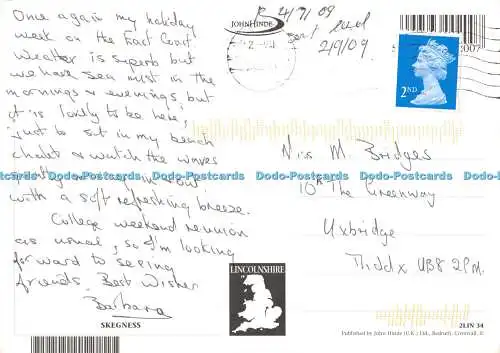 Once again my holiday
week on the East Coast
Weather is superb but
we have sea mist in the
mornings & evenings, but
it is lovely to be here,
just to sit in my beach
chalet & watch the waves
with a soft refreshing breeze.
College weekend reunion
as usual, so I'm looking
forward to seeing
friends. Best Wishes
Barbara
SKEGNESS
JOHN HINDE
R 24/7/09
sent card
2/9/09
2007
2ND
Miss M. Bridges
10A The Greenway
Uxbridge
Middx UB8 2PM.
LINCOLNSHIRE
2LIN 34
Published by John Hinde (U.K.) Ltd., Redruth, Cornwall.
Dodo-Postcards Dodo-Postcards Dodo-Postcards Dodo-Postcards Dodo-Postcards